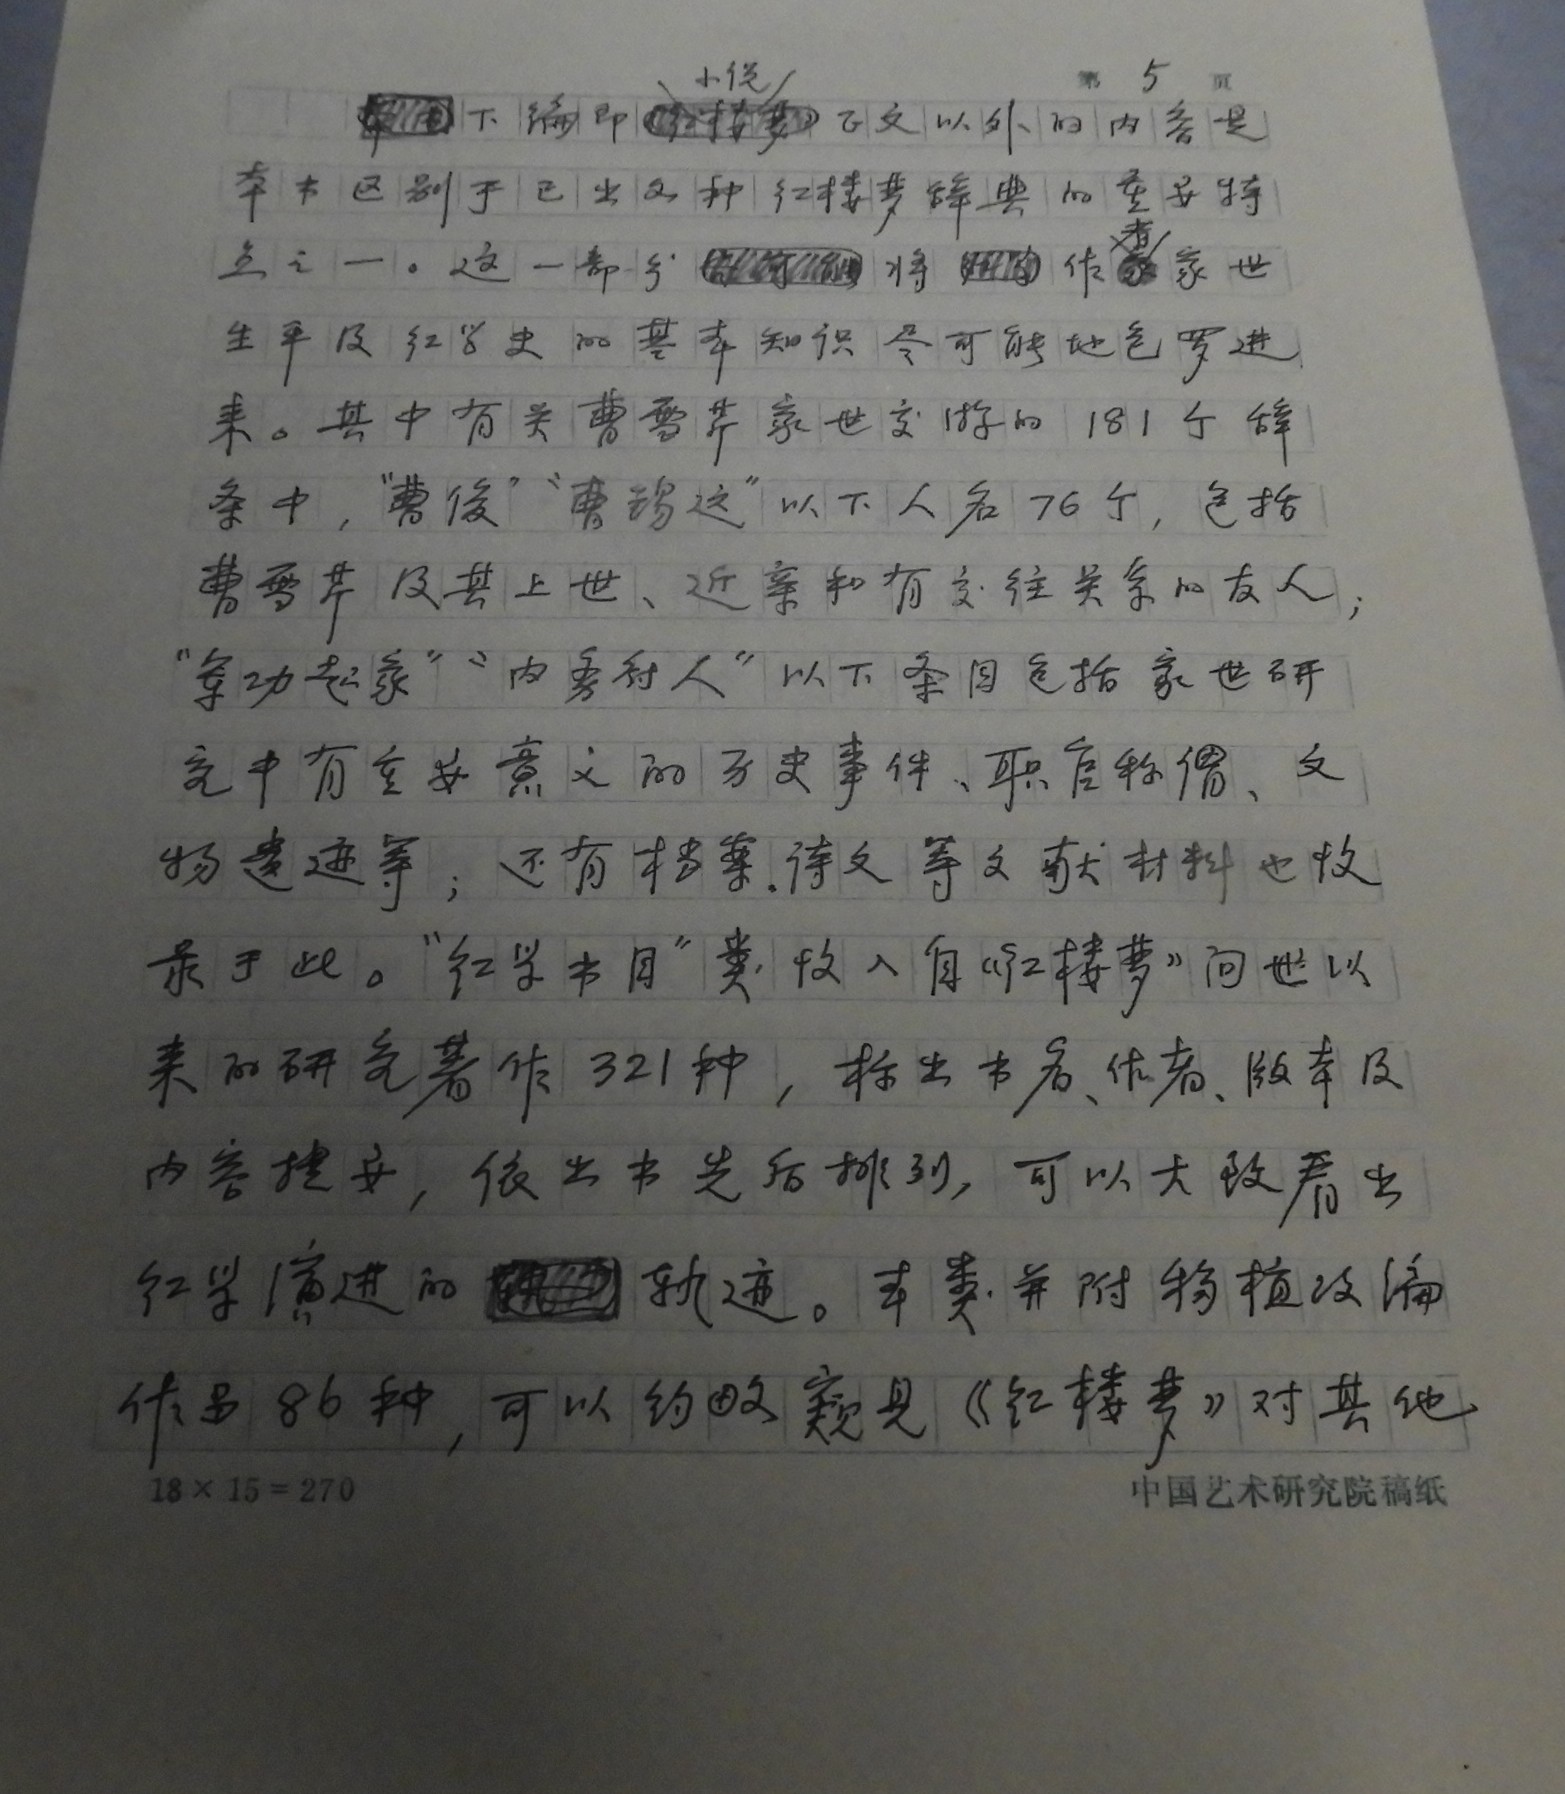 第 5 页
小说
下编即正文以外的内容是
本书区别于已出各种红楼梦辞典的重要特
者
点之一。这一部分将作家世
生平及红学史的基本知识尽可能地包罗进
来。其中有关曹雪芹家世交游的181个辞
条中，“曹俊”“曹锡远”以下人名76个，包括
曹雪芹及其上世、近亲和有交往关系的友人；
“军功起家”“内务府人”以下条目包括家世研
究中有重要意义的历史事件、职官称谓、文
物遗迹等；还有档案.诗文等文献材料也收
录于此。“红学书目”类收入自《红楼梦》问世以
来的研究著作321种，标出书名、作者、版本及
内容提要，依出书先后排列，可以大致看出
红学演进的轨迹。本类并附移植改编
作品86种，可以约略窥见《红楼梦》对其他
18×15=270
中国艺术研究院稿纸